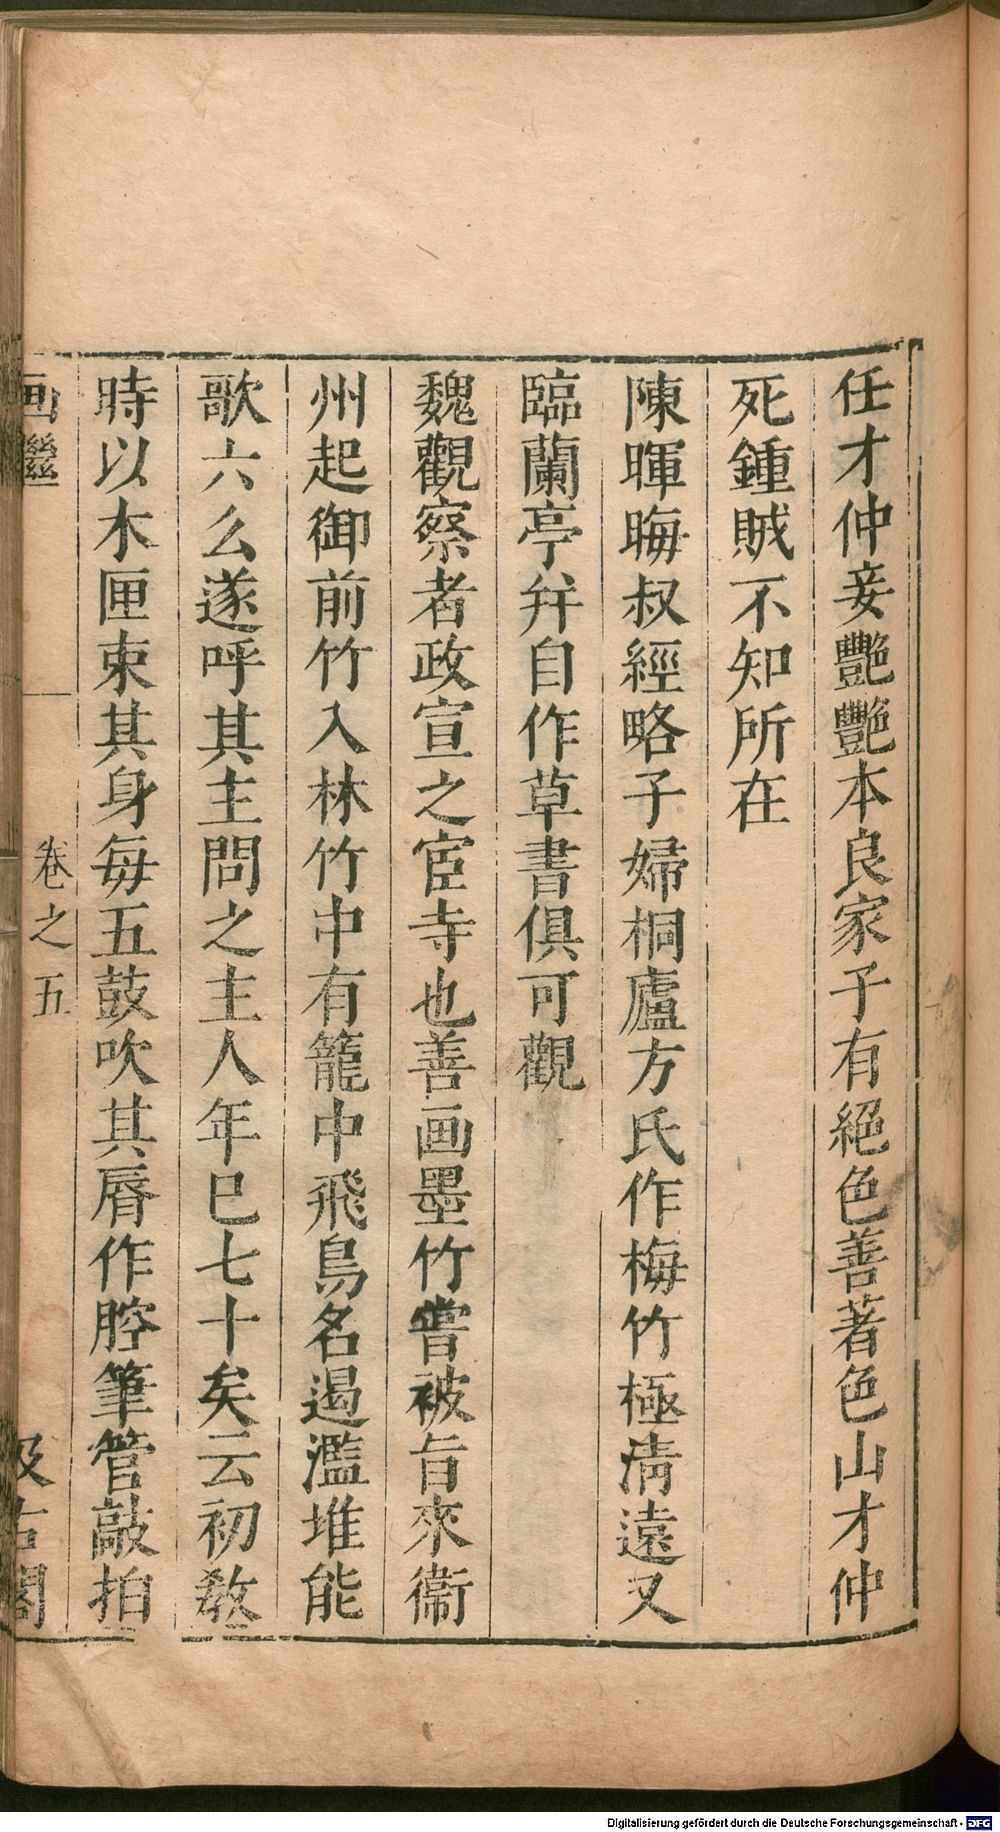 任才仲妾艷艷本良家子有絕色善著色山才仲
死鍾賊不知所在
陳暉晦叔經略子婦桐廬方氏作梅竹極清遠又
臨蘭亭并自作草書俱可觀
魏觀察者政宣之宦寺也善画墨竹嘗被旨來衞
州起御前竹入林竹中有籠中飛鳥名遏濫堆能
歌六么遂呼其主問之主人年巳七十矣云初教
時以木匣束其身每五鼓吹其脣作腔筆管敲拍
画繼
卷之五
汲古閣
Digitalisierung gefördert durch die Deutsche Forschungsgemeinschaft - DFG